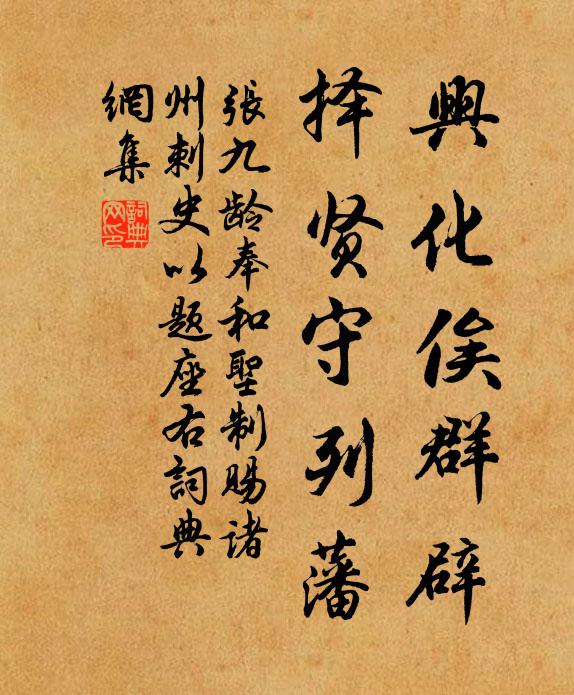 興化俟群辟
择贤守列藩
張九龄奉和聖制賜诸
州刺史以题座右詞典
網集
詞典
网印